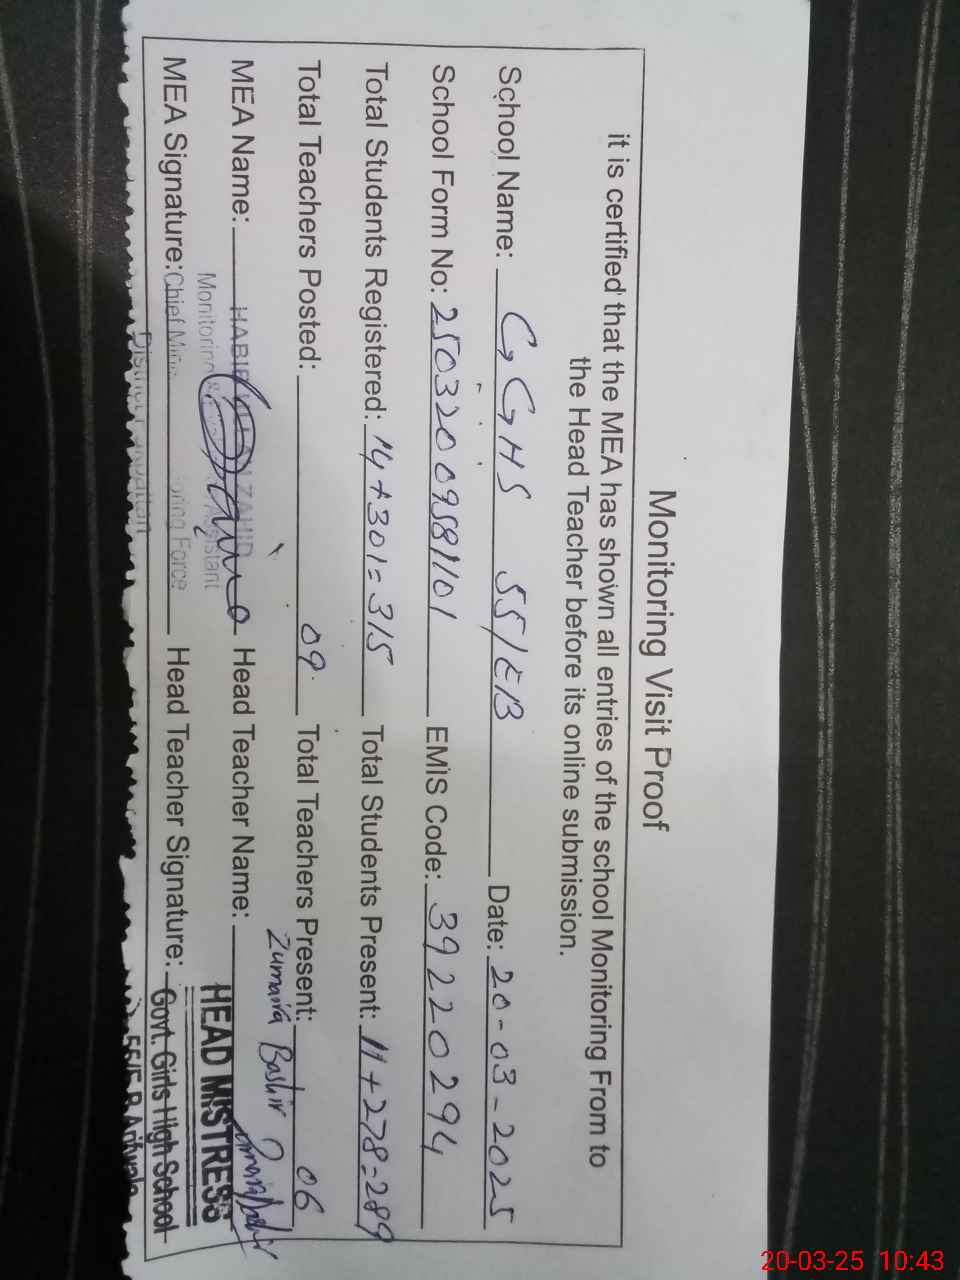 Monitoring Visit Proof
it is certified that the MEA has shown all entries of the school Monitoring From to
the Head Teacher before its online submission.
School Name: GGHS 55/EB Date: 20-03-2025
School Form No: 25032009581101 EMIS Code: 39220294
Total Students Registered: 14+301=315 Total Students Present: 11+278=289
Total Teachers Posted: 09 Total Teachers Present: 06
Zumaira Bashir
MEA Name: HABIB ZAHID Head Teacher Name:
Monitoring & Assistant HEAD MISTRESS
MEA Signature: Chief Force Head Teacher Signature: Govt. Girls High School
District 55/E.B Arifwala
20-03-25 10:43